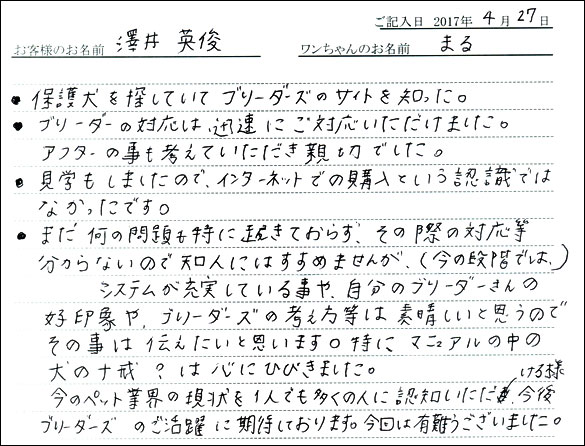 ご記入日 2017年 4月 27日
お客様のお名前 澤井 英俊 ワンちゃんのお名前 まる
● 保護犬を探していてブリーダーズのサイトを知った。
● ブリーダーの対応は迅速にご対応いただけました。
アフターの事も考えていただき親切でした。
● 見学もしましたので、インターネットでの購入という認識では
なかったです。
● まだ何の問題も特に起きておらず、その際の対応等
分からないので知人にはすすめませんが、(今の段階では、)
システムが充実している事や、自分のブリーダーさんの
好印象や、ブリーダーズの考え方等は素晴しいと思うので
その事は伝えたいと思います。特にマニュアルの中の
犬の十戒?は心にひびきました。
ける様
今のペット業界の現状を1人でも多くの人に認知いただ、今後
ブリーダーズのご活躍に期待しております。今回は有難うございました。